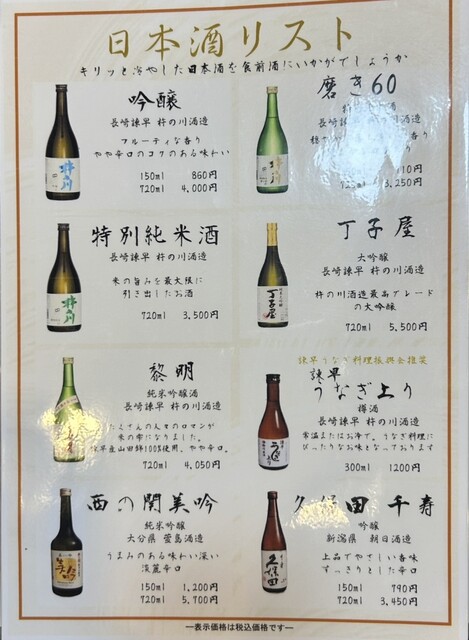 日本酒リスト
キリッと冷やした日本酒を食前酒にいかがでしょうか
吟醸
長崎諫早 杵の川酒造
フルーティな香り
やや辛口のコクのある味わい
150ml 860円
720ml 4,000円
磨き60
長崎諫早 杵の川酒造
10円
720ml 3,250円
特別純米酒
長崎諫早 杵の川酒造
米の旨みを最大限に
引き出したお酒
720ml 3,500円
丁子屋
大吟醸
長崎諫早 杵の川酒造
杵の川酒造最高グレード
の大吟醸
720ml 5,500円
黎明
純米吟醸酒
長崎諫早 杵の川酒造
たくさんの人々のロマンが
米の雫になりました。
諫早産山田錦100%使用。やや辛口。
720ml 4,050円
諫早うなぎ料理振興会推奨
諫早
うなぎ上り
樽酒
長崎諫早 杵の川酒造
常温またはお冷で。うなぎ料理に
ぴったりなお味となっております
300ml 1200円
西の関美吟
純米吟醸
大分県 萱島酒造
うまみのある味わい深い
淡麗辛口
150ml 1,200円
720ml 5,700円
久保田 千寿
吟醸
新潟県 朝日酒造
上品でやさしい香味
すっきりとした辛口
150ml 790円
720ml 3,450円
―表示価格は税込価格です―